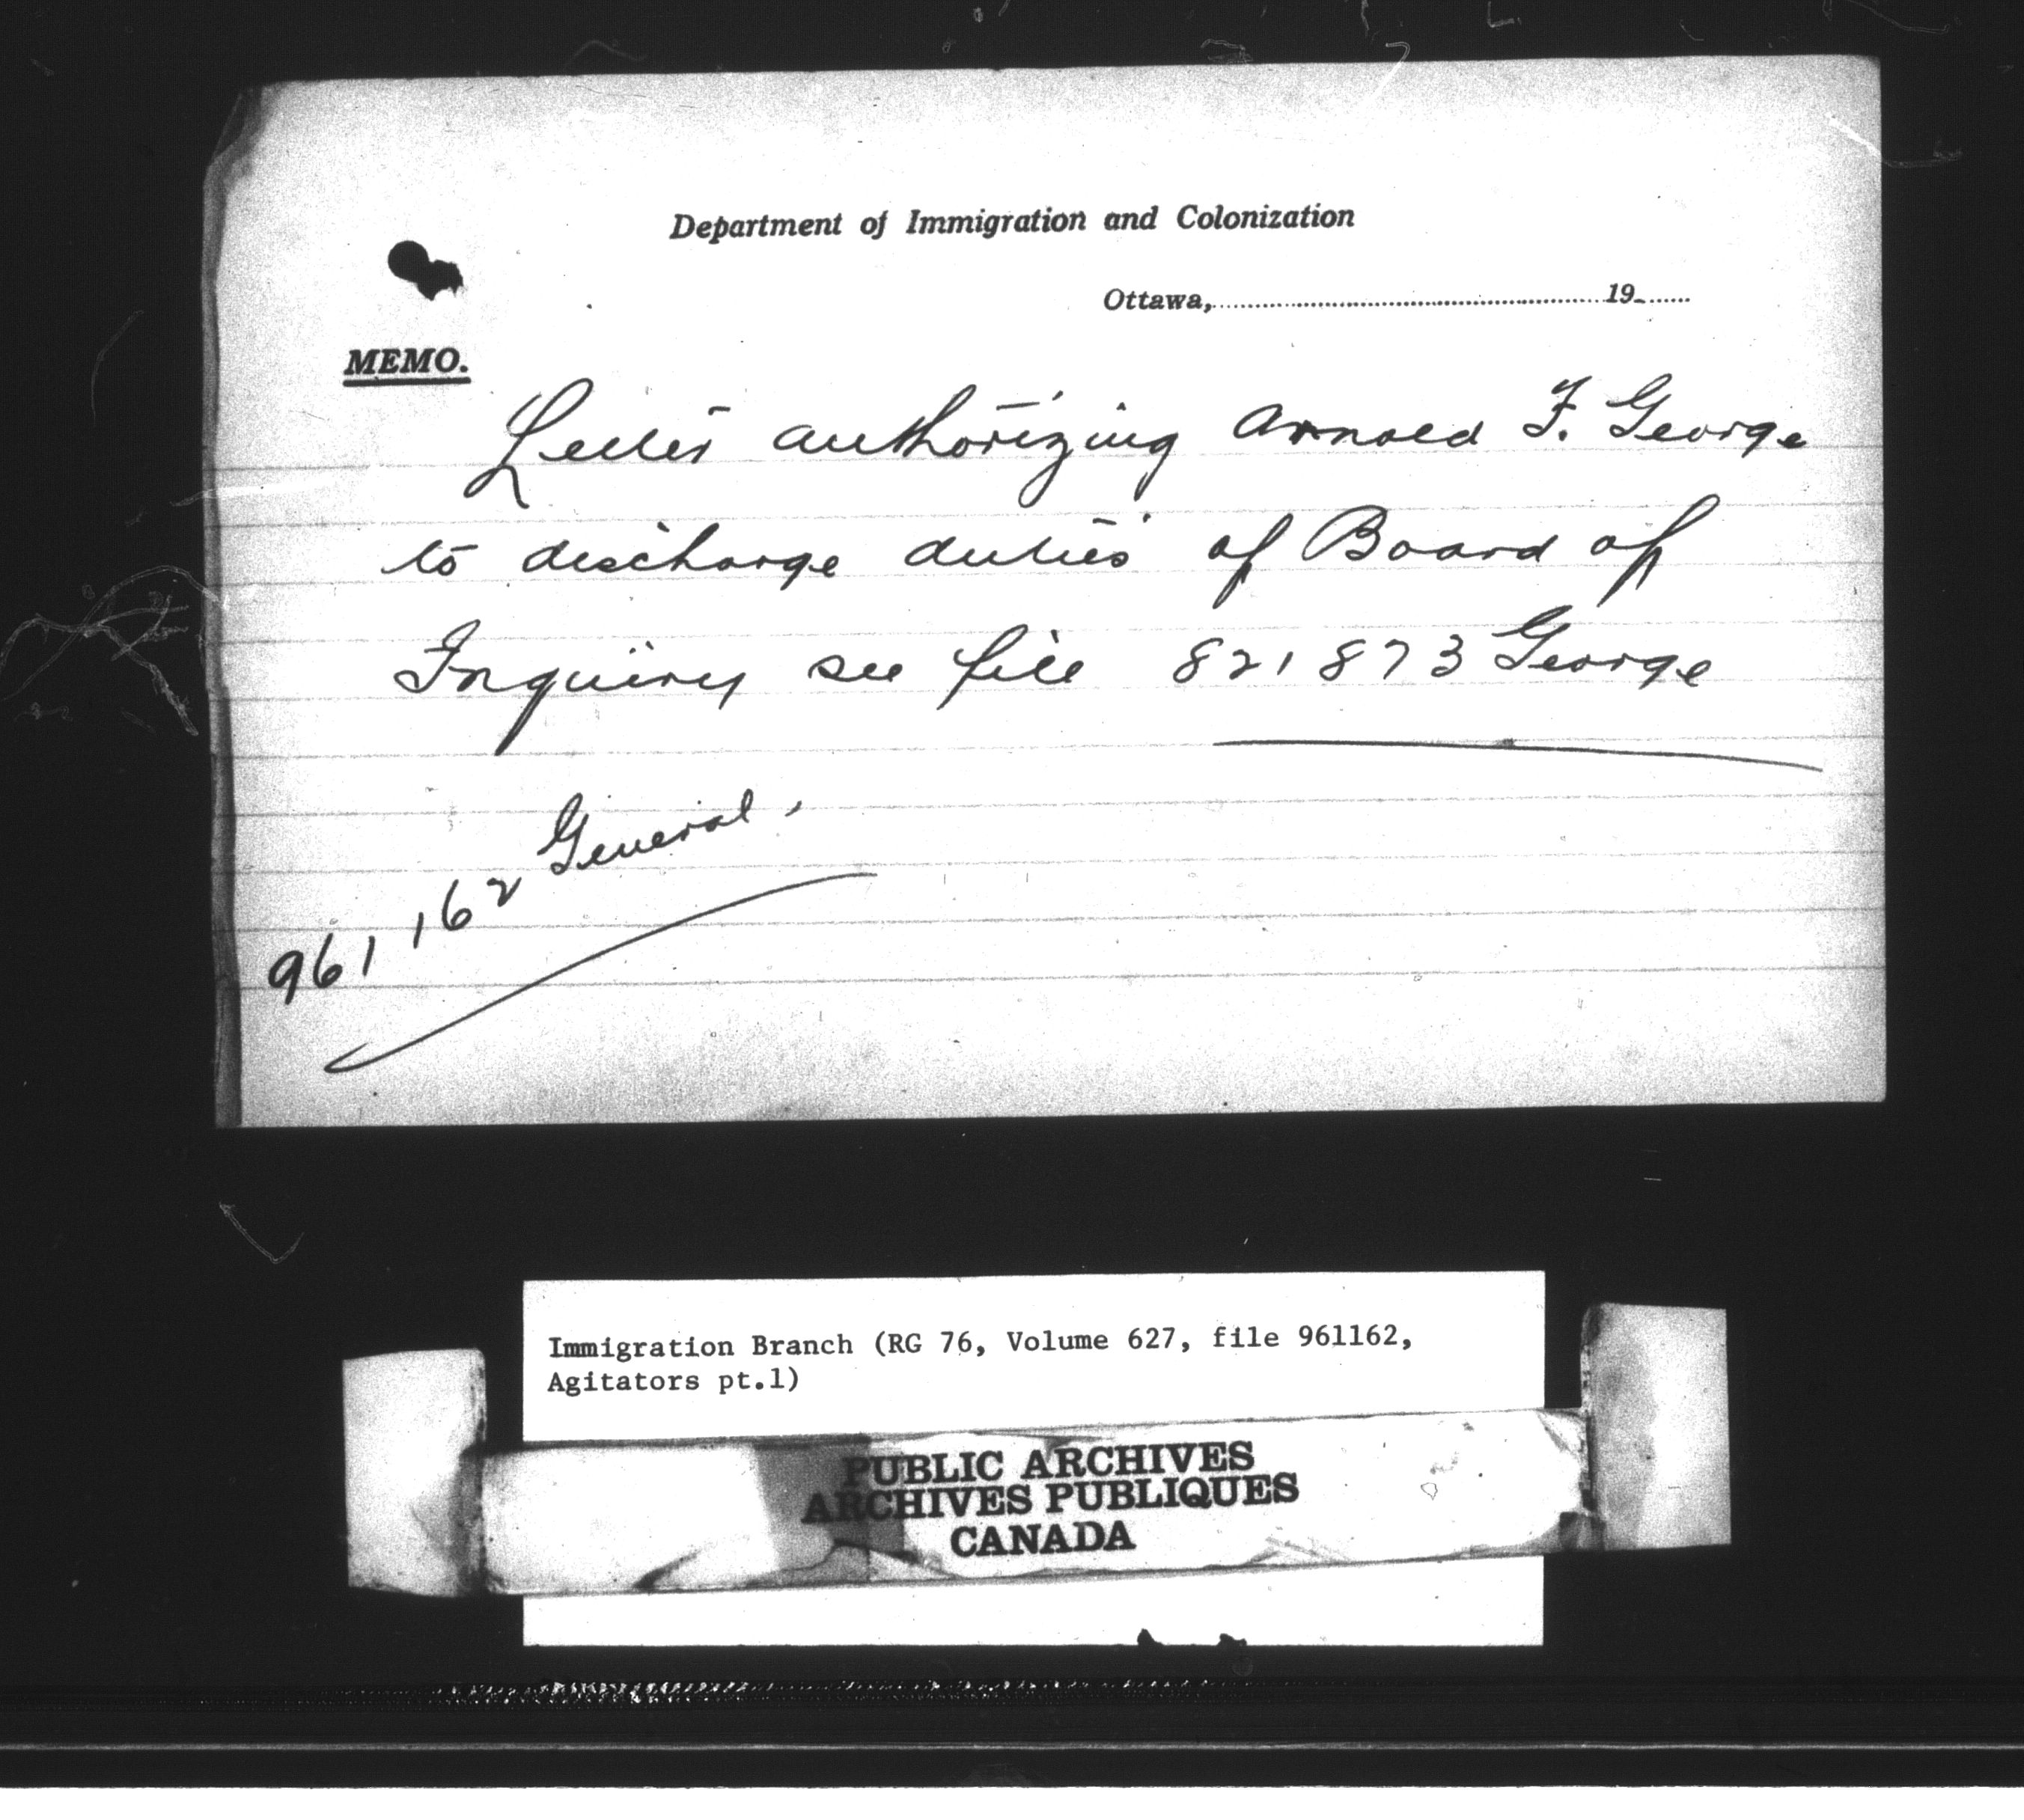 Department of Immigration and Colonization
Ottawa,..........19.......
MEMO.
Letter authorizing Arnold F. George
to discharge duties of Board of
Inquiry see file 821873 George
961162 General.
Immigration Branch (RG 76, Volume 627, file 961162,
Agitators pt.1)
PUBLIC ARCHIVES
ARCHIVES PUBLIQUES
CANADA